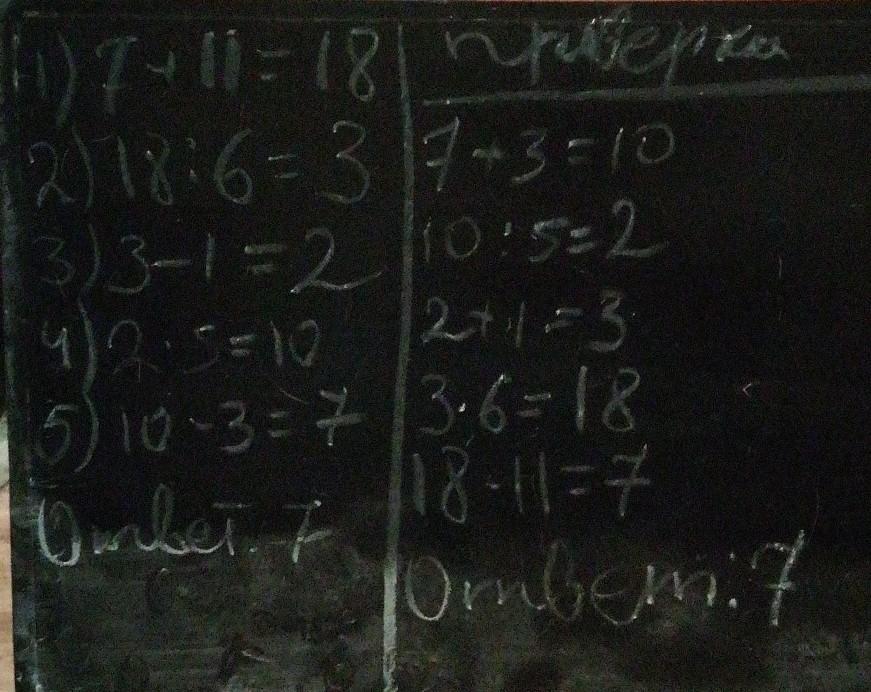 1) 7 + 11 = 18
2) 18 : 6 = 3
3) 3 - 1 = 2
4) 2 · 5 = 10
5) 10 - 3 = 7
Ответ: 7
Проверка
7 + 3 = 10
10 : 5 = 2
2 + 1 = 3
3 · 6 = 18
18 - 11 = 7
Ответ: 7